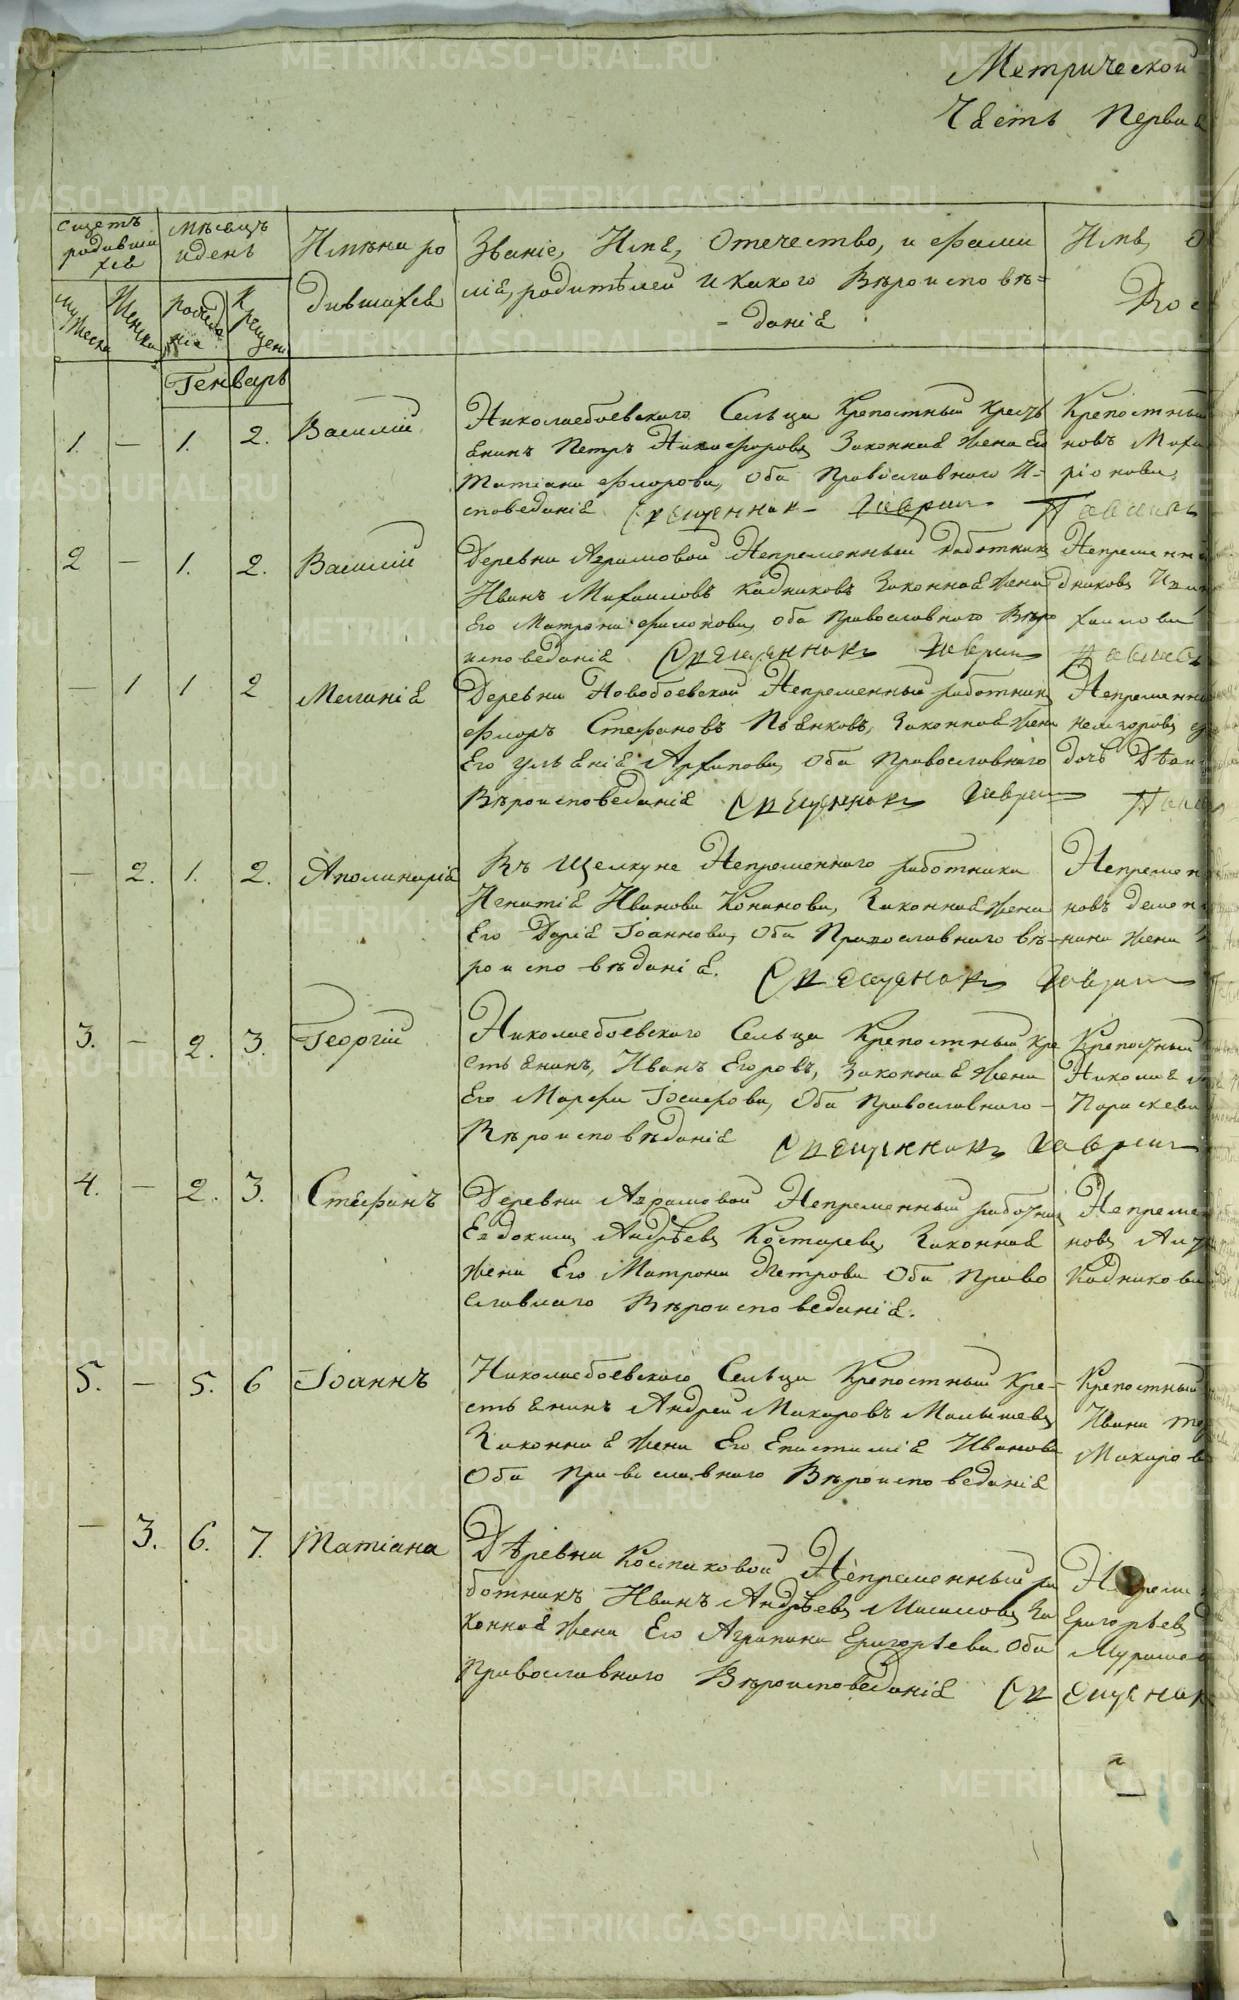 Метрической
Часть Перва
Счетъ родивши хся
Мѣсяцъ и день
Имѣна ро
дившихся
Званіе, Имя, Отечество, и фами
лія, родителей и какого Вѣроисповѣ=
- данія
Имя, О
муЖеска
Женска
рожде нія
Крещен
Генварь
1. — 1. 2. Василій
Николаебоевскаго Сельца Крепостный Крест
янинъ Петръ Никифоровъ Законная жена Его
Татіана Флорова, оба Православнаго И=
споведанія Священникъ Гаврил
Крепостный
новъ Миха
ріонова,
2 — 1. 2. Василій
Деревни Абрамовой Непременный Работник
Иванъ Михаиловъ Кадниковъ Законная жена
Его Матрона Филонова, оба Православнаго Вѣро
исповеданія Священникъ Гаврил
Непременны
дниковъ
хаилова
— 1 1 2 Меланія
Деревни Новобоевской Непременный работник
Флоръ Стефановъ Пьянковъ, Законная жена
Его Ульянія Архипова, Оба Православнаго
Вѣроисповеданія Священникъ Гаврил
Непременны
дочь
— 2. 1. 2. Аполинарія
Въ Щелкуне Непременнаго работника
Игнатія Иванова Конанова, Законная Жена
Его Дарія Іоаннова, Оба Православнаго вѣ-
роисповѣданія. Священникъ Гаврил
Непремен
новъ
нина жена
3. — 2. 3. Георгій
Николаебоевскаго Сельца Крепостный Кре
стьянинъ, Иванъ Егоровъ, Законная Жена
Его Марфа Іосифова, Оба Православнаго -
Вѣроисповѣданія Священникъ Гаврил
Крепостный
Никола
Параскева
4. — 2. 3. Стефанъ
Деревни Абрамовой Непременный работник
Евдокимъ Андрѣевъ Костаревъ, Законная
жена Его Матрона Петрова Оба Право
славнаго Вѣроисповеданія.
Непремен
новъ
Кадникова
5. — 5. 6 Іоаннъ
Николаебоевскаго Сельца Крепостный Кре-
стьянинъ Андрей Макаровъ Малышевъ
Законная жена Его Епистимія Иванова
Оба Православнаго Вѣроисповеданія
Крепостный
Ивана
Макаров
— 3. 6. 7. Татіана
Дѣревни Космаковой Непременный ра
ботникъ Иванъ Андрѣевъ Маслловъ За
конная жена Его Агрипина Григорьева Оба
Православнаго Вѣроисповеданія Священник
Григорьевъ